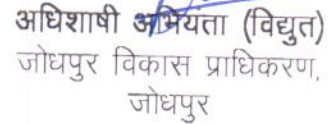 अधिशाषी अभियंता (विद्युत)
जोधपुर विकास प्राधिकरण,
जोधपुर